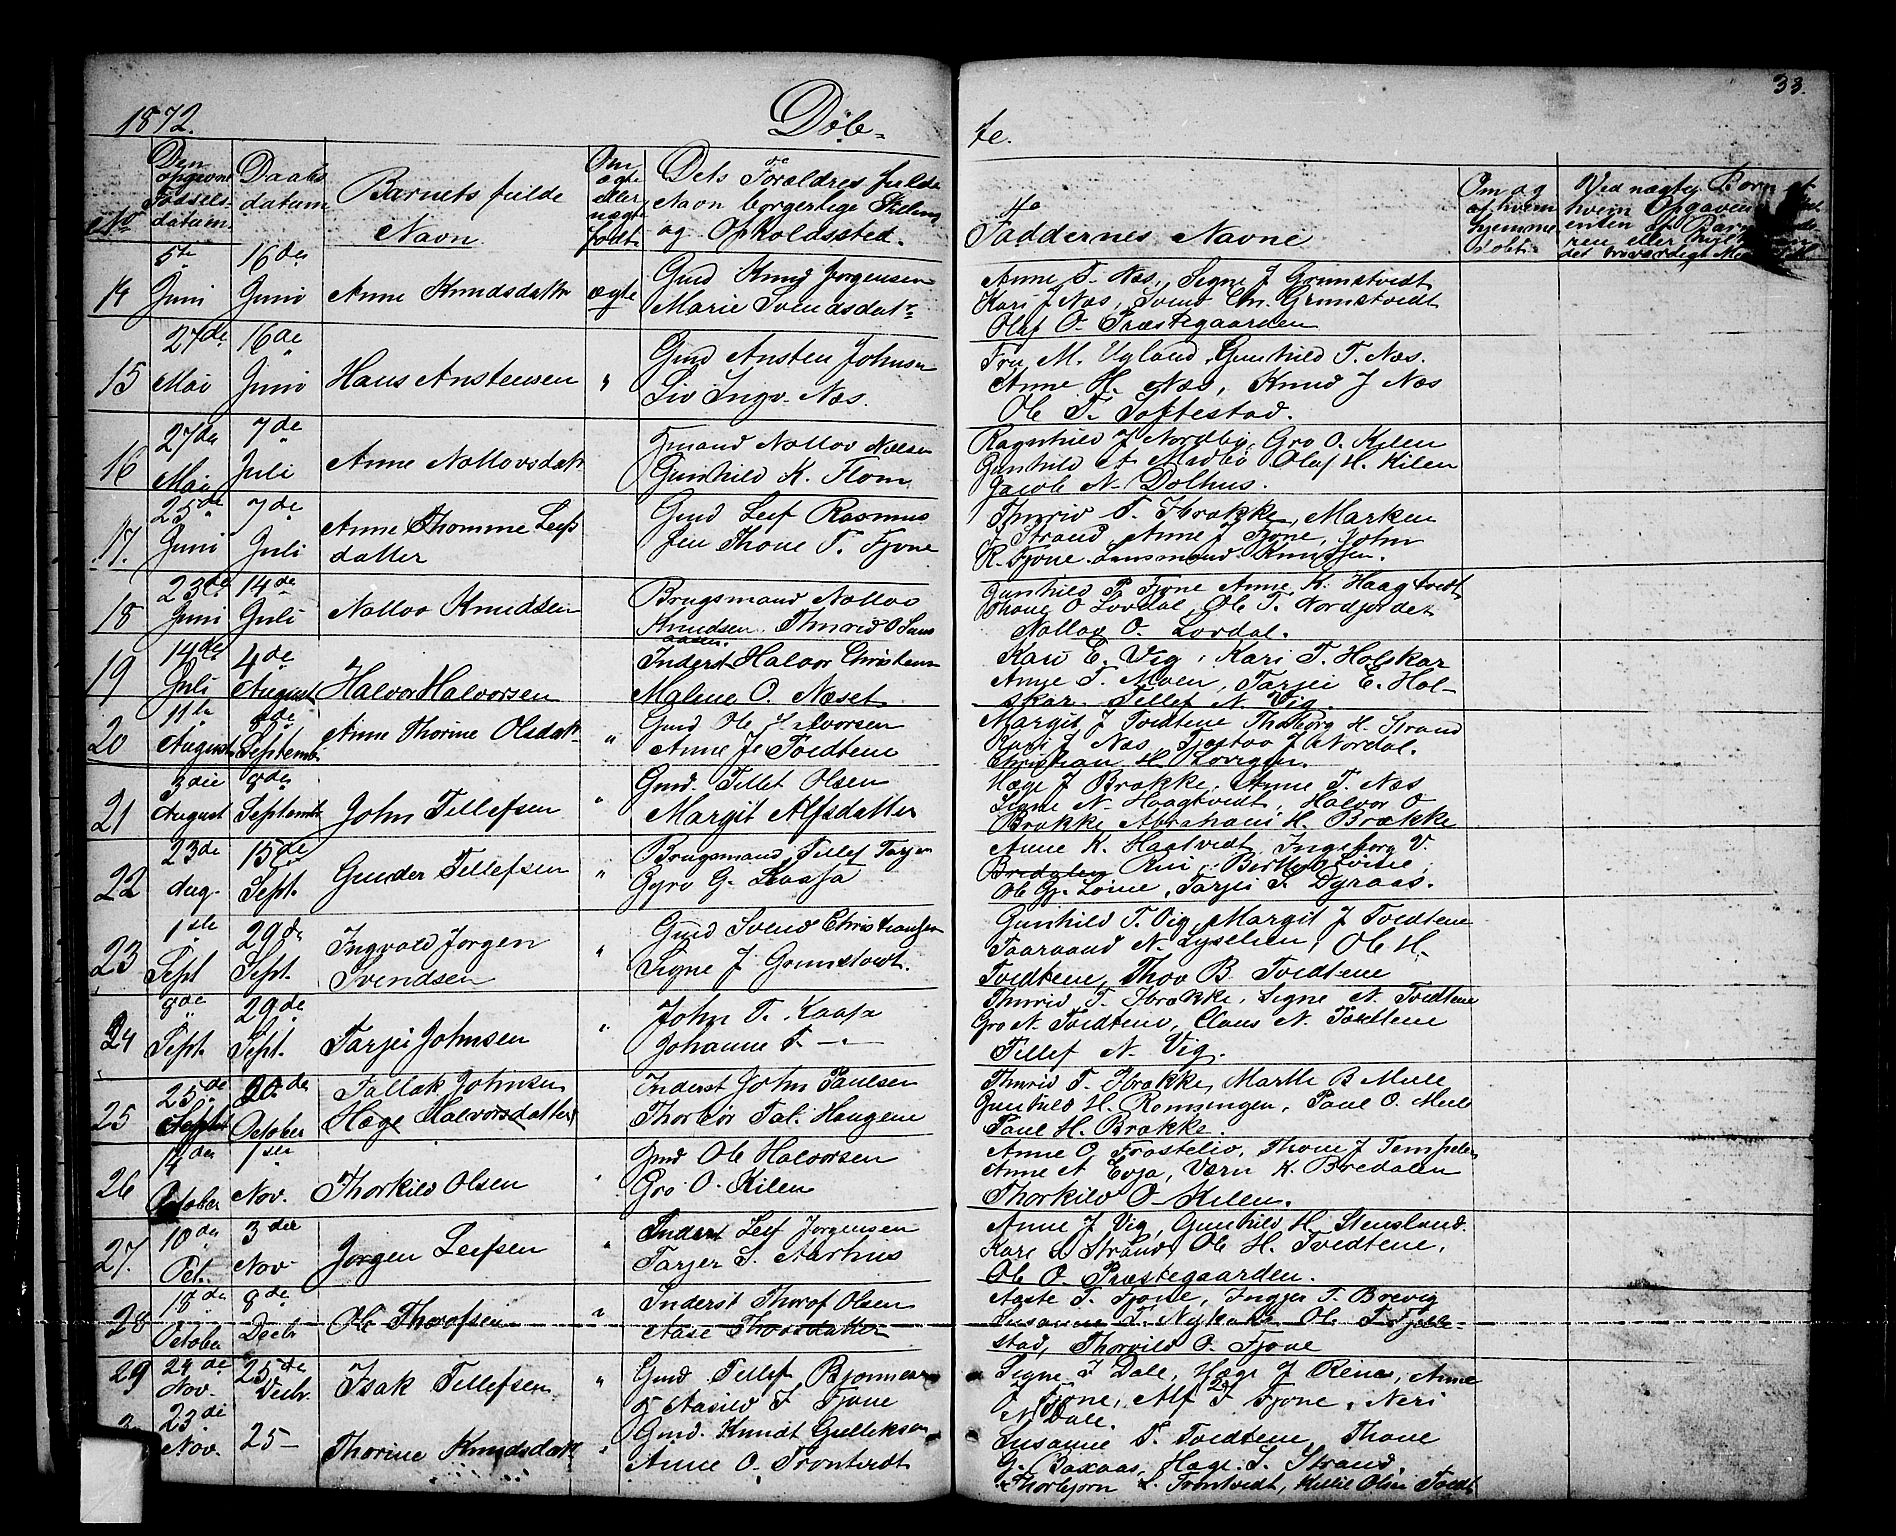 1872.
Døb-
te.
33.
No
Den opgivne Fødsels-datum.
Daabs datum
Barnets fulde Navn
Om ægte eller uægte født.
Dets Forældres fulde Navn borgerlige Stilling og Opholdssted.
Faddernes Navne
Om og af hvem hjemme døbt.
Ved uægte Børn af hvem Opgaven
14 5te Juni 16de Juni Anne Knudsdatr ægte Gmd Knud Jørgensen
Marie Svendsdatr
Anne T. Næs, Signe J Grimstvedt
Kari J Næs, Svend Chr. Grimstvedt
Olaf O. Præstegaarden
15 27de Mai 16de Juni Hans Anstensen " Gmd Ansten Johnsen
Liv Ingv. Næs.
Fru M. Ugland, Gunhild T. Næs.
Anne H. Næs, Knud J Næs
Ole T. Toftestad.
16 27de Mai 7de Juli Anne Nollovsdatr Gmand Nollov Nielsen
Gunhild K. Flom
Ragnhild J Nordbø, Gro O. Kilen
Gunhild A Midbø Olaf H. Kilen
Jacob N. Dolhus.
17. 25de Juni 7de Juli Anne Thomme Leifs
datter
Gmd Leif Rasmus
sen Thone T. Fjone
Thurid T. Brække, Marken
J Strand, Anne J Fjone, John
R. Fjone. Lensmand Knudsen.
18 23de Juni 14de Juli Nollov Knudsen Brugsmand Nollov
Knudsen. Thurid O
Gunhild P Fjone Anne K. Haagtvedt
Thone O Lovdal, Ole T. Nordjordet
Nollov O. Lovdal.
19 14de Juli 4de August Halvor Halvorsen Inderst Halvor Christensen
Malene O. Næset
Kari E. Vig, Kari T. Holskar
Anne T. Moen, Tarjei E. Hol-
skar. Tillef N. Vig.
20 11te August Septembr Anne Thorine Olsdatr " Gmd Ole Halvorsen
Anne J. Tvedtene
Margit J Tvedtene Thoborg H. Strand
Kari J Næs, Tjøstov J Nordal.
Christian H.
21 3die August 8de Septembr John Tillefsen " Gmd. Tillef Olsen
Margit Alfsdatter
Hæge J Brække, Anne T. Næs
Signe N. Haagtvedt, Halvor O
Brække Abraham H. Brække
22 23de Aug. 15de Sept. Gunder Tillefsen " Brugsmand Tillef Tarjei
Gyro G. Kaasa
Anne K. Haatvedt, Ingeborg V.
Bredalen Rui, Berthe Løine,
Ole Gj. Løine, Tarjei T. Dyraas.
23 1ste Sept 29de Sept. Ingvald Jørgen
Svendsen
" Gmd Svend Christiansen
Signe J Grimstvedt.
Gunhild T. Vig, Margit J Tvedtene
Taaraand N. Lyselien, Ole H.
Tvedtene, Thov B. Tvedtene
24 8de Sept. 29de Sept. Tarjei Johnsen " John T. Kaasa
Johanne T —"—
Thurid T. Brække, Signe N. Tvedtene
Gro N. Tvedtene, Claus N. Tvedtene
Tillef N. Vig.
25 25de Septbr 20de October Tallak Johnsen
Hæge Halvorsdatter
" Inderst John Paulsen
Thorbør Tal. Haugene
Thurid T. Brække, Marthe B Mule
Gunhild H. Romsingen, Paul O. Mule
Paul H. Brække.
26 14de October 1ste Nov. Thorkild Olsen " Gmd Ole Halvorsen
Gro O. Kilen
Anne O. Frosteliv, Thone J Tempelen
Anne A Evja, Værn K. Bredalen
Thorkild O. Kilen.
27. 10de Oct. 3die Nov. Jørgen Leifsen " Inderst Leif Jørgensen
Tarjer S. Aarhus
Anne J Vig, Gunhild H. Stensland.
Kari S. Strand, Ole H. Tvedtene,
Ole O. Præstegaarden.
28 18de October 8de Decbr Ole Thorofsen " Inderst Thorof Olsen
Aase Thorsdatter
Aaste T. Fjone, Ingjer T. Brevig
Susanne T. Nykaas Ole T Fjelle-
stad, Thorvild O. Fjone
29 24de Nov. 25de Decbr. Isak Tillefsen " Gmd Tillef Bjønnes
og Aasild T Fjone
Signe T Dale, Hæge J Reine, Anne
O Fjone, Alf J Fjone, Neri
N. Dale.
23de Nov. 25 — Thorine Knudsdatr " Gmd. Knudt Gulleksen
Anne O. Trontvedt
Susanne T. Tvedtene, Thone
G. Baxaas, Hæge S. Strand.
Thorbjørn L. Trontvedt, Kittil Olsen Tvedt